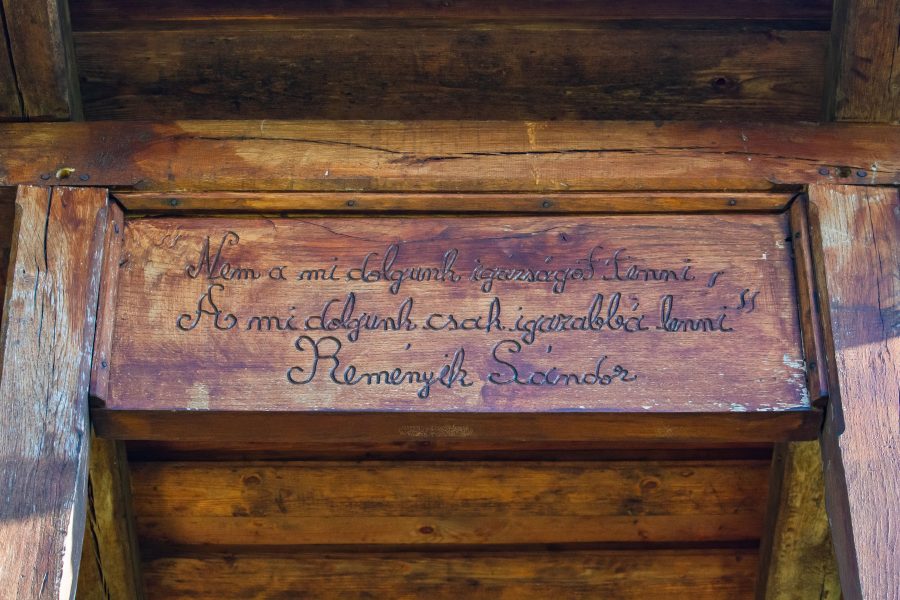 "Nem a mi dolgunk igazságot tenni,
A mi dolgunk csak igazabbá lenni"
Reményik Sándor